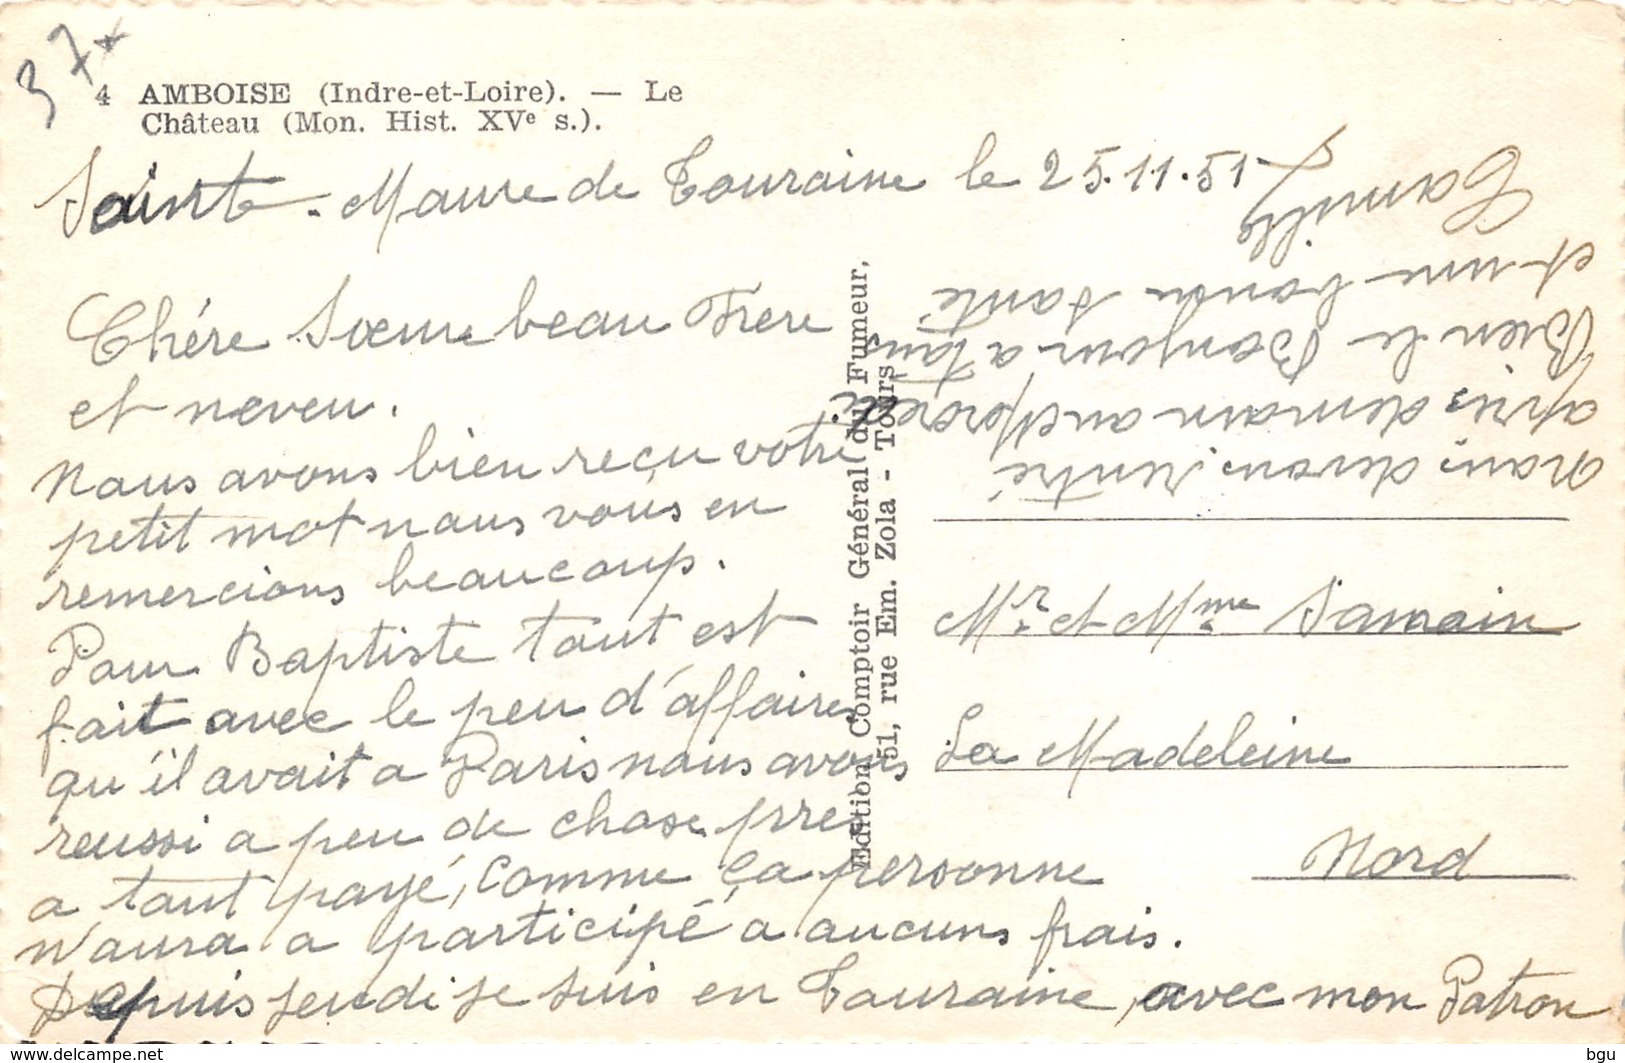 37+
4 AMBOISE (Indre-et-Loire). — Le
Château (Mon. Hist. XVe s.).
Sainte-Maure de Touraine le 25.11.51
Chére Sœure beau Frere
et neveu.
Nous avons bien reçu votre
petit mot nous vous en
remercions beaucoup.
Pour Baptiste tout est
fait avec le peu d'affaires
qu'il avait a Paris nous avons
reussi a peu de chose pres
a tout payé, comme ça personne
n'aura a participé a aucuns frais.
Depuis jeudi je suis en Touraine, avec mon Patron
nous devons rentré
apris demain au Mercredi
Bien le Bonjour a tous
et une bonne santé
Camille
Edition Comptoir Général du Fumeur,
51, rue Em. Zola - Tours
Mr. et Mme Samain
La Madeleine
Nord
https://www.delcampe.net
bgu